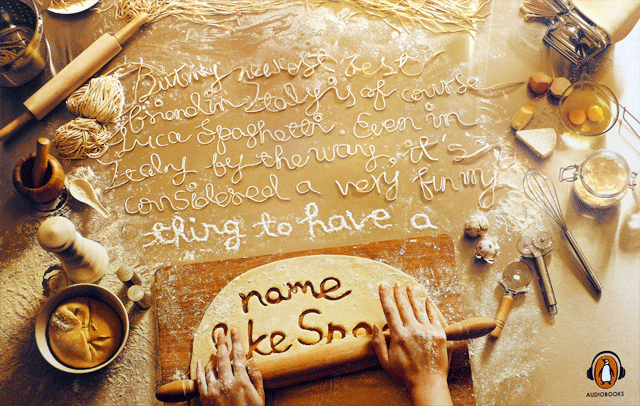 But my newest best
friend in Italy is of course
Luca Spaghetti. Even in
Italy by the way, it's
considered a very funny
thing to have a
name
like
AUDIOBOOKS